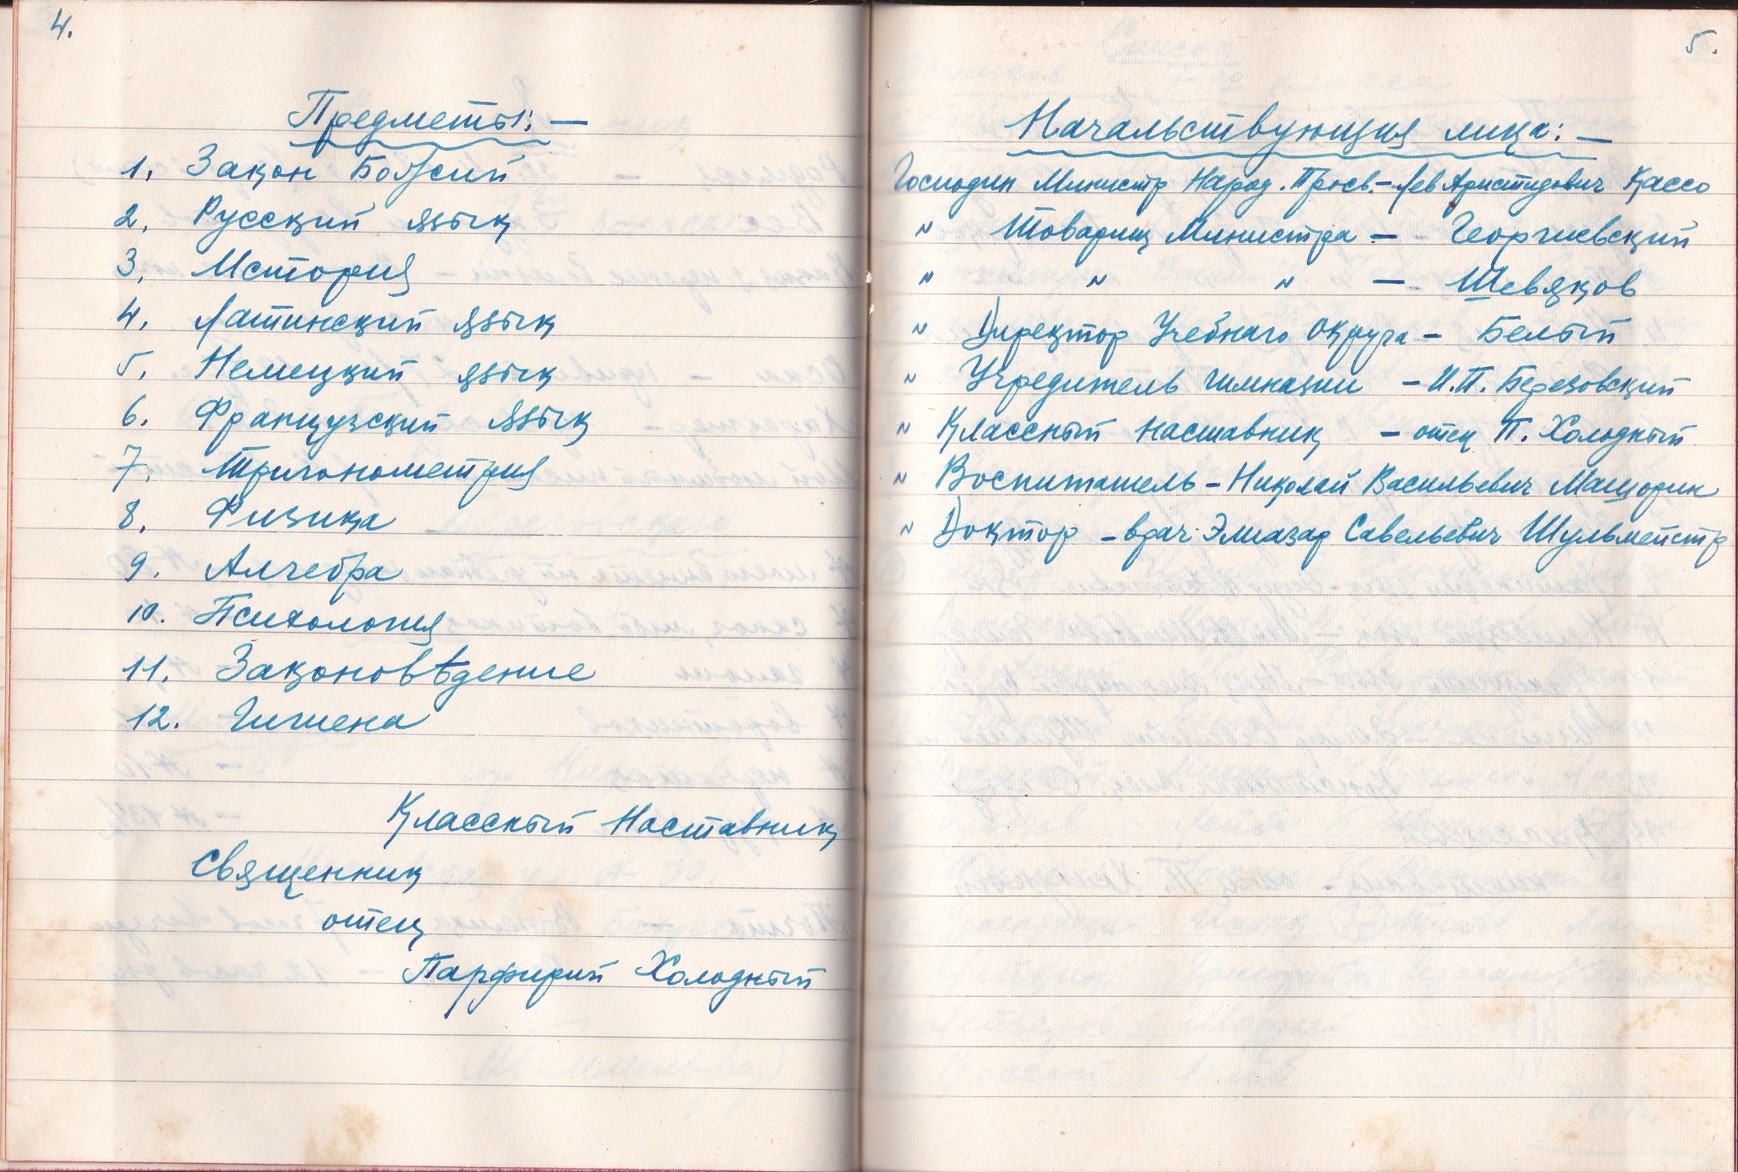 4.
Предметы: —
1. Закон Божий
2. Русский язык
3. История
4. Латинский язык
5. Немецкий язык
6. Французский язык
7. Тригонометрия
8. Физика
9. Алгебра
10. Психология
11. Законовѣдение
12. Гигиена
Классный Наставник
Священник
отец
Парфирий Холодный
5.
Начальствующия лица: —
Господин Министр Народ. Просв. – Лев Аристидович Кассо
" Товарищ Министра — Георгиевский
" " " — Шевяков
" Директор Учебнаго Округа – Белый
" Учредитель гимназии – И.П. Березовский
" Классный наставник – отец П. Холодный
" Воспитатель – Николай Васильевич Мащорин
" Доктор – врач Элиазар Савельевич Шульмейстр